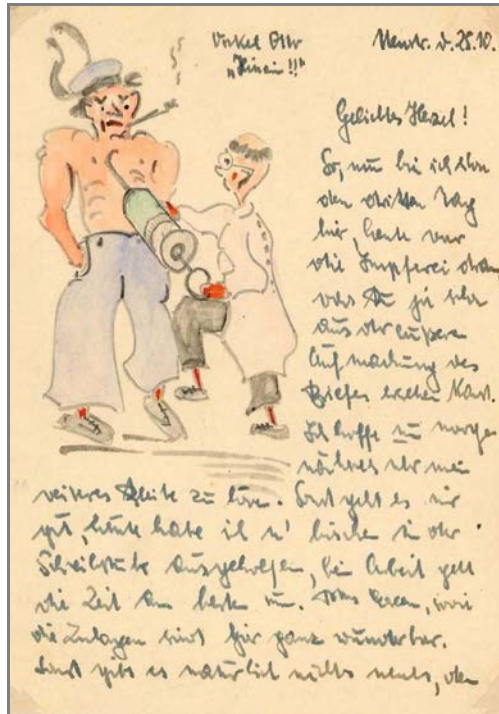 Onkel Otto
„Hinein!!"
d. 28.10.
Geliebtes Hesel!
So, nun bin ich schon
den dritten Tag
hier, heute war
die Impferei dran
was Du ja schon
aus der äußeren
Aufmachung des
Briefes ersehen kannst.
Ich hoffe morgen
weiteres zu hören. Sonst geht es mir
gut, heute habe ich n' bischen in der
Schreibstube ausgeholfen, bei Arbeit geht
die Zeit am besten um. Das Essen, sowie
die Zulagen sind hier ganz wunderbar.
Sonst gibt es natürlich nichts neues, den